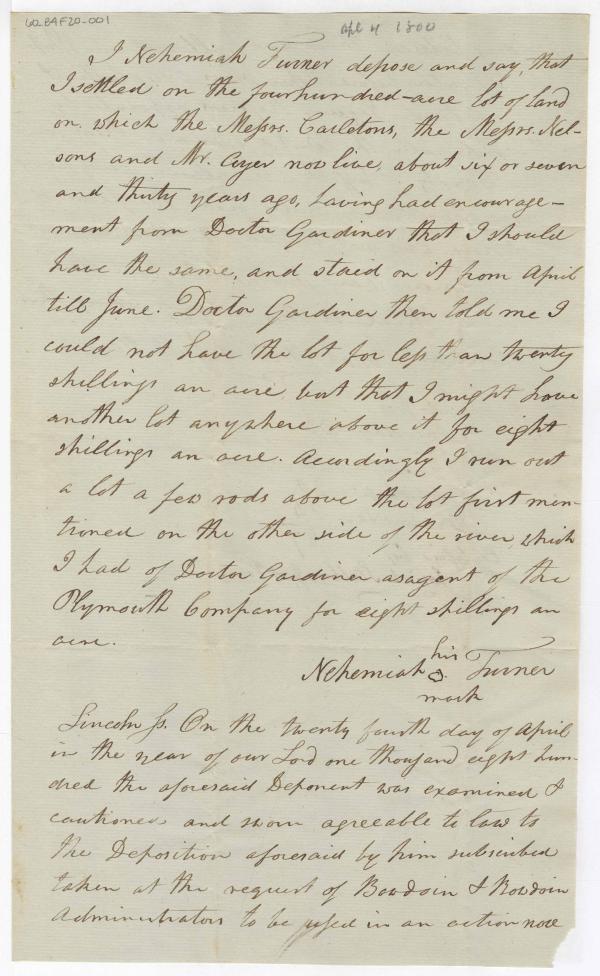 60.BAF20-001
Apl 4 1800
I Nehemiah Turner depose and say, that
I settled on the fourhundred-acre lot of land
on which the Messrs. Carletons, the Messrs. Nel-
sons and Mr. Ayer now live, about six or seven
and thirty years ago, having had encourage-
ment from Doctor Gardiner that I should
have the same, and staid on it from April
till June. Doctor Gardiner then told me I
could not have the lot for less than twenty
shillings an acre, but that I might have
another lot anywhere above it for eight
shillings an acre. Accordingly I run out
a lot a few rods above the lot first men-
tioned on the other side of the river, which
I had of Doctor Gardiner as agent of the
Plymouth Company for eight shillings an
acre.
his
Nehemiah Turner
mark
Lincoln ss. On the twenty fourth day of April
in the year of our Lord one thousand eight hun-
dred the aforesaid Deponent was examined &
cautioned and sworn agreeable to law to
the Deposition aforesaid by him subscribed
taken at the request of Bowdoin & Bowdoin
Administrators to be used in an action now